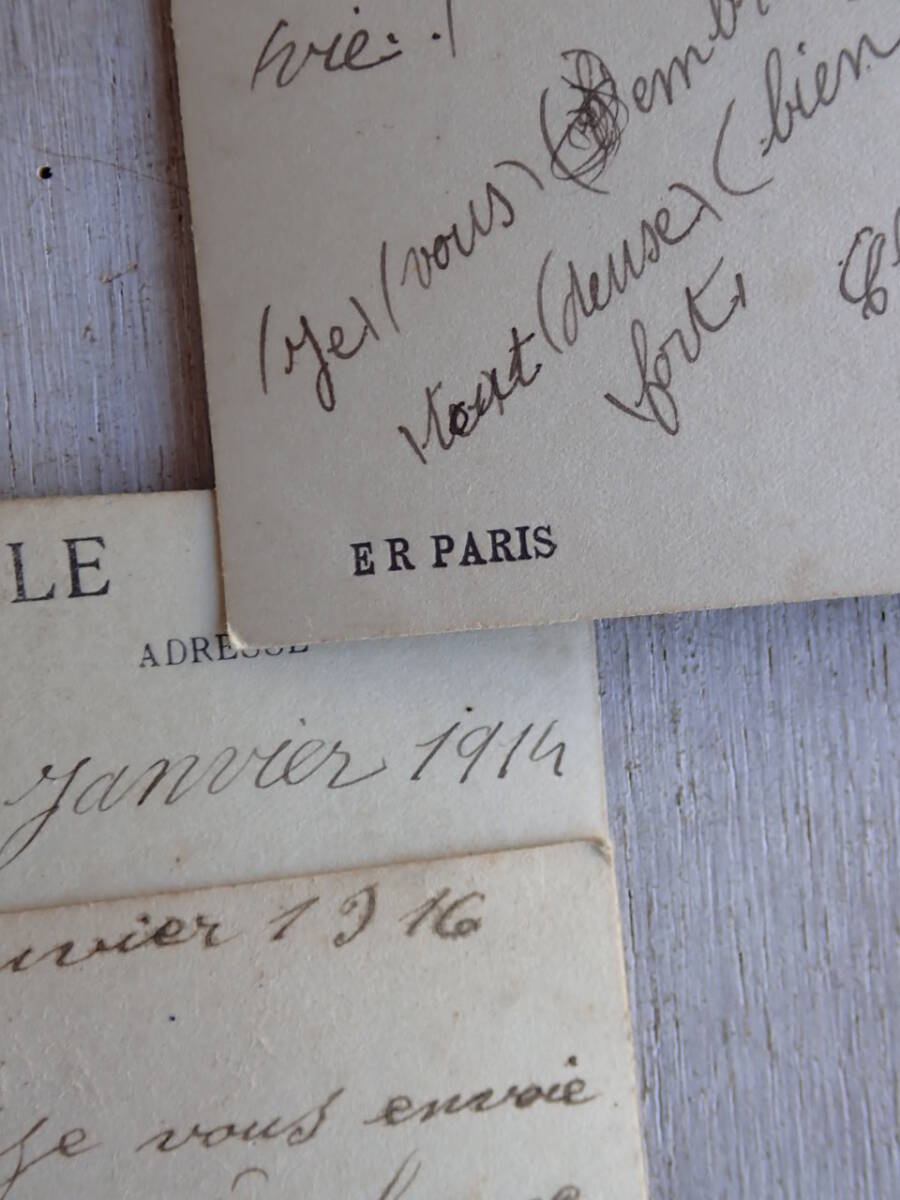 vie.
(Je) (vous)
tout (deuse) (bien
fort,
ER PARIS
LE
ADRESSE
Janvier 1914
nvier 1916
Je vous envoie